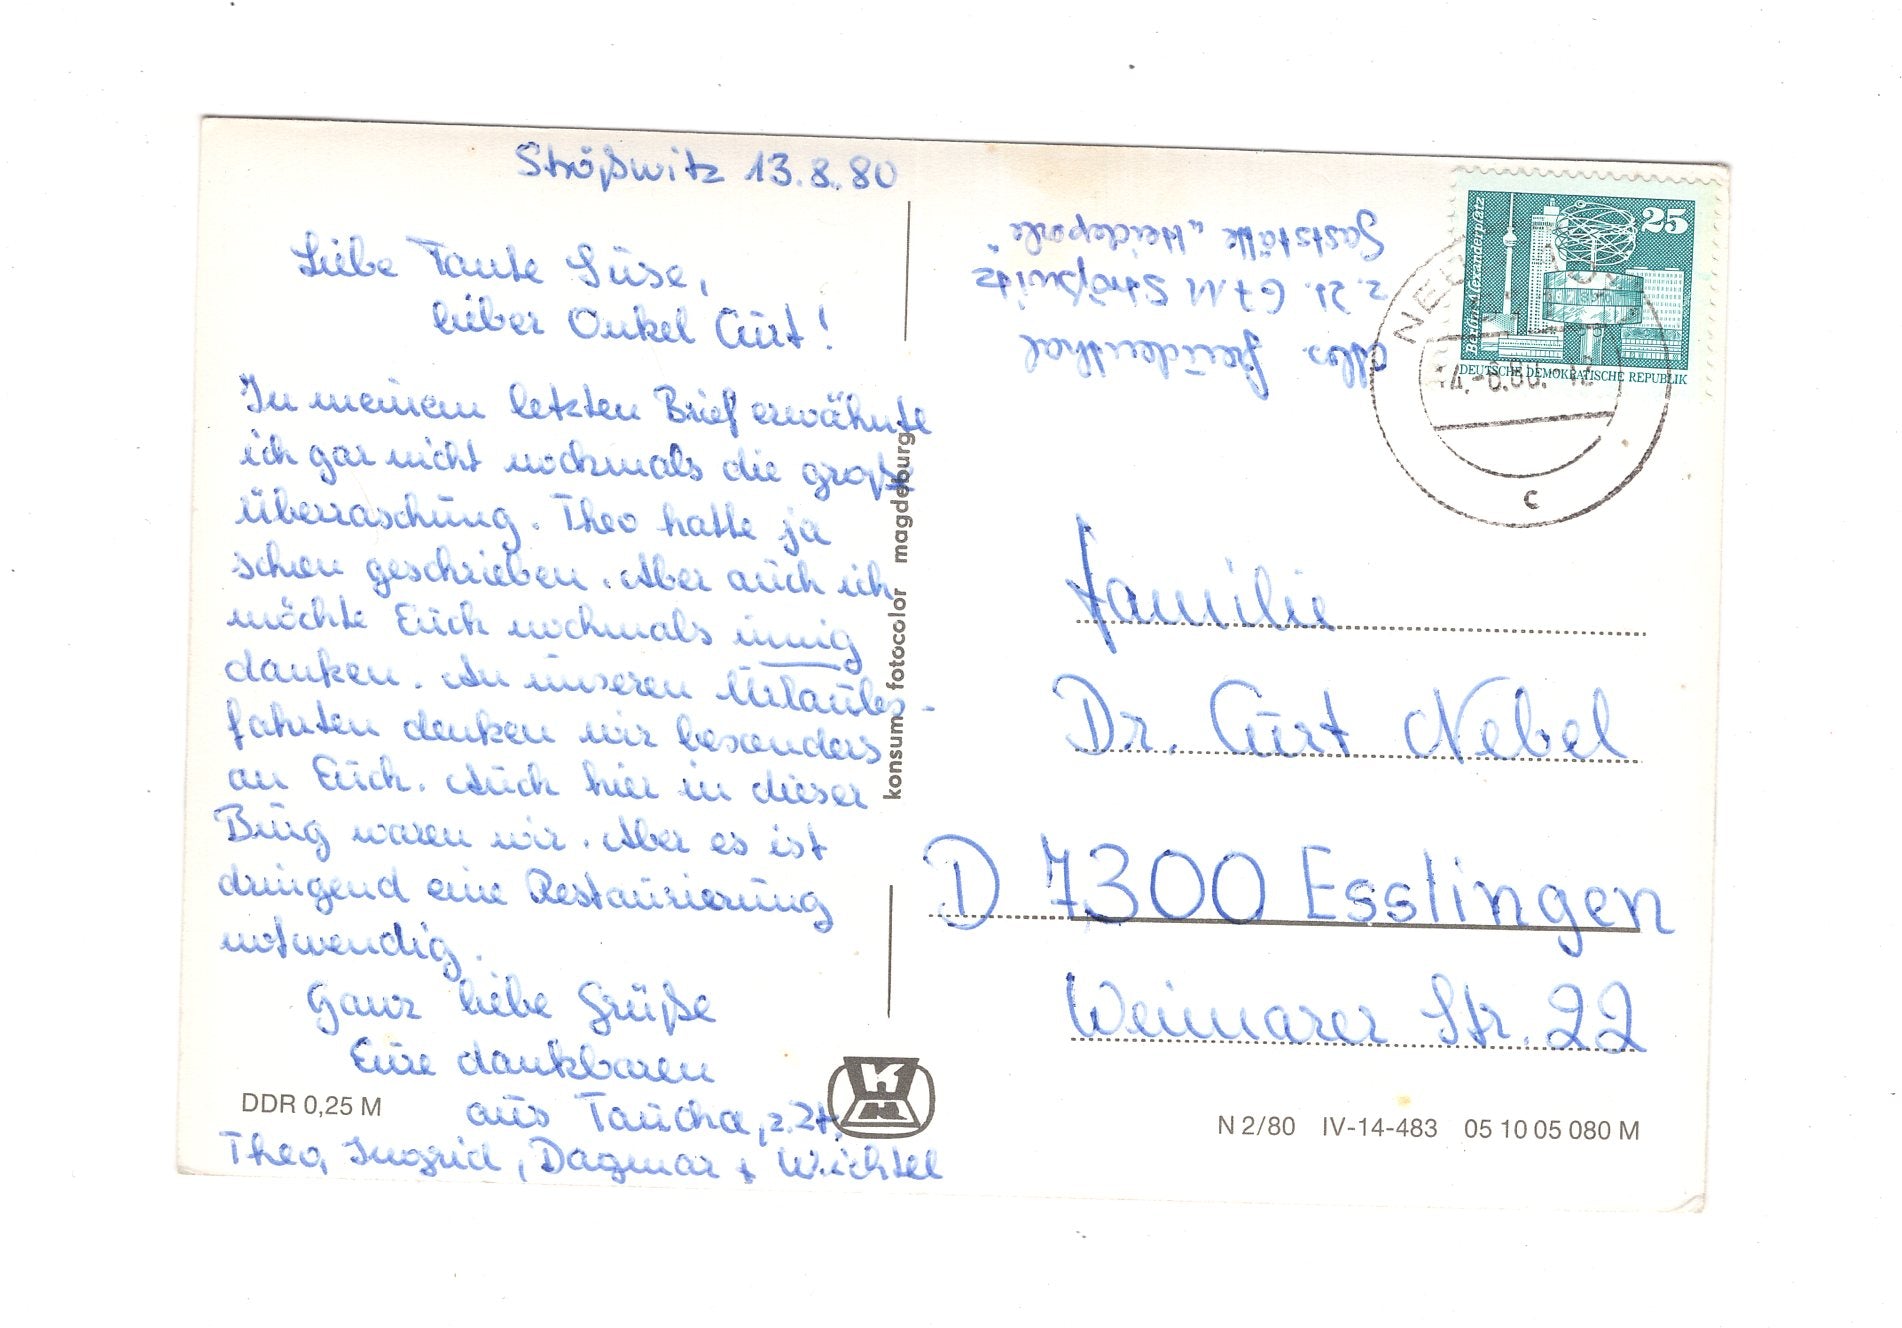 Strößwitz 13.8.80
Liebe Tante Suse,
lieber Onkel Curt!
In meinem letzten Brief erwähnte
ich gar nicht nochmals die große
Überraschung. Theo hatte ja
schon geschrieben. Aber auch ich
möchte Euch nochmals innig
danken. An unseren Urlaubs-
fahrten denken wir besonders
an Euch. Auch hier in dieser
Burg waren wir. Aber es ist
dringend eine Restaurierung
notwendig.
Ganz liebe Grüße
Eure dankbaren
aus Taucha, z.Zt.
Theo, Ingrid, Dagmar + Wichtel
DDR 0,25 M
konsum fotocolor magdeburg
Abs. Freudenthal
z. Zt. 6711 Strößwitz
Gaststätte "Heideperle"
Berlin-Alexanderplatz
25
DEUTSCHE DEMOKRATISCHE REPUBLIK
c
Familie
Dr. Curt Nebel
D 7300 Esslingen
Weimarer Str. 22
N 2/80 IV-14-483 05 10 05 080 M